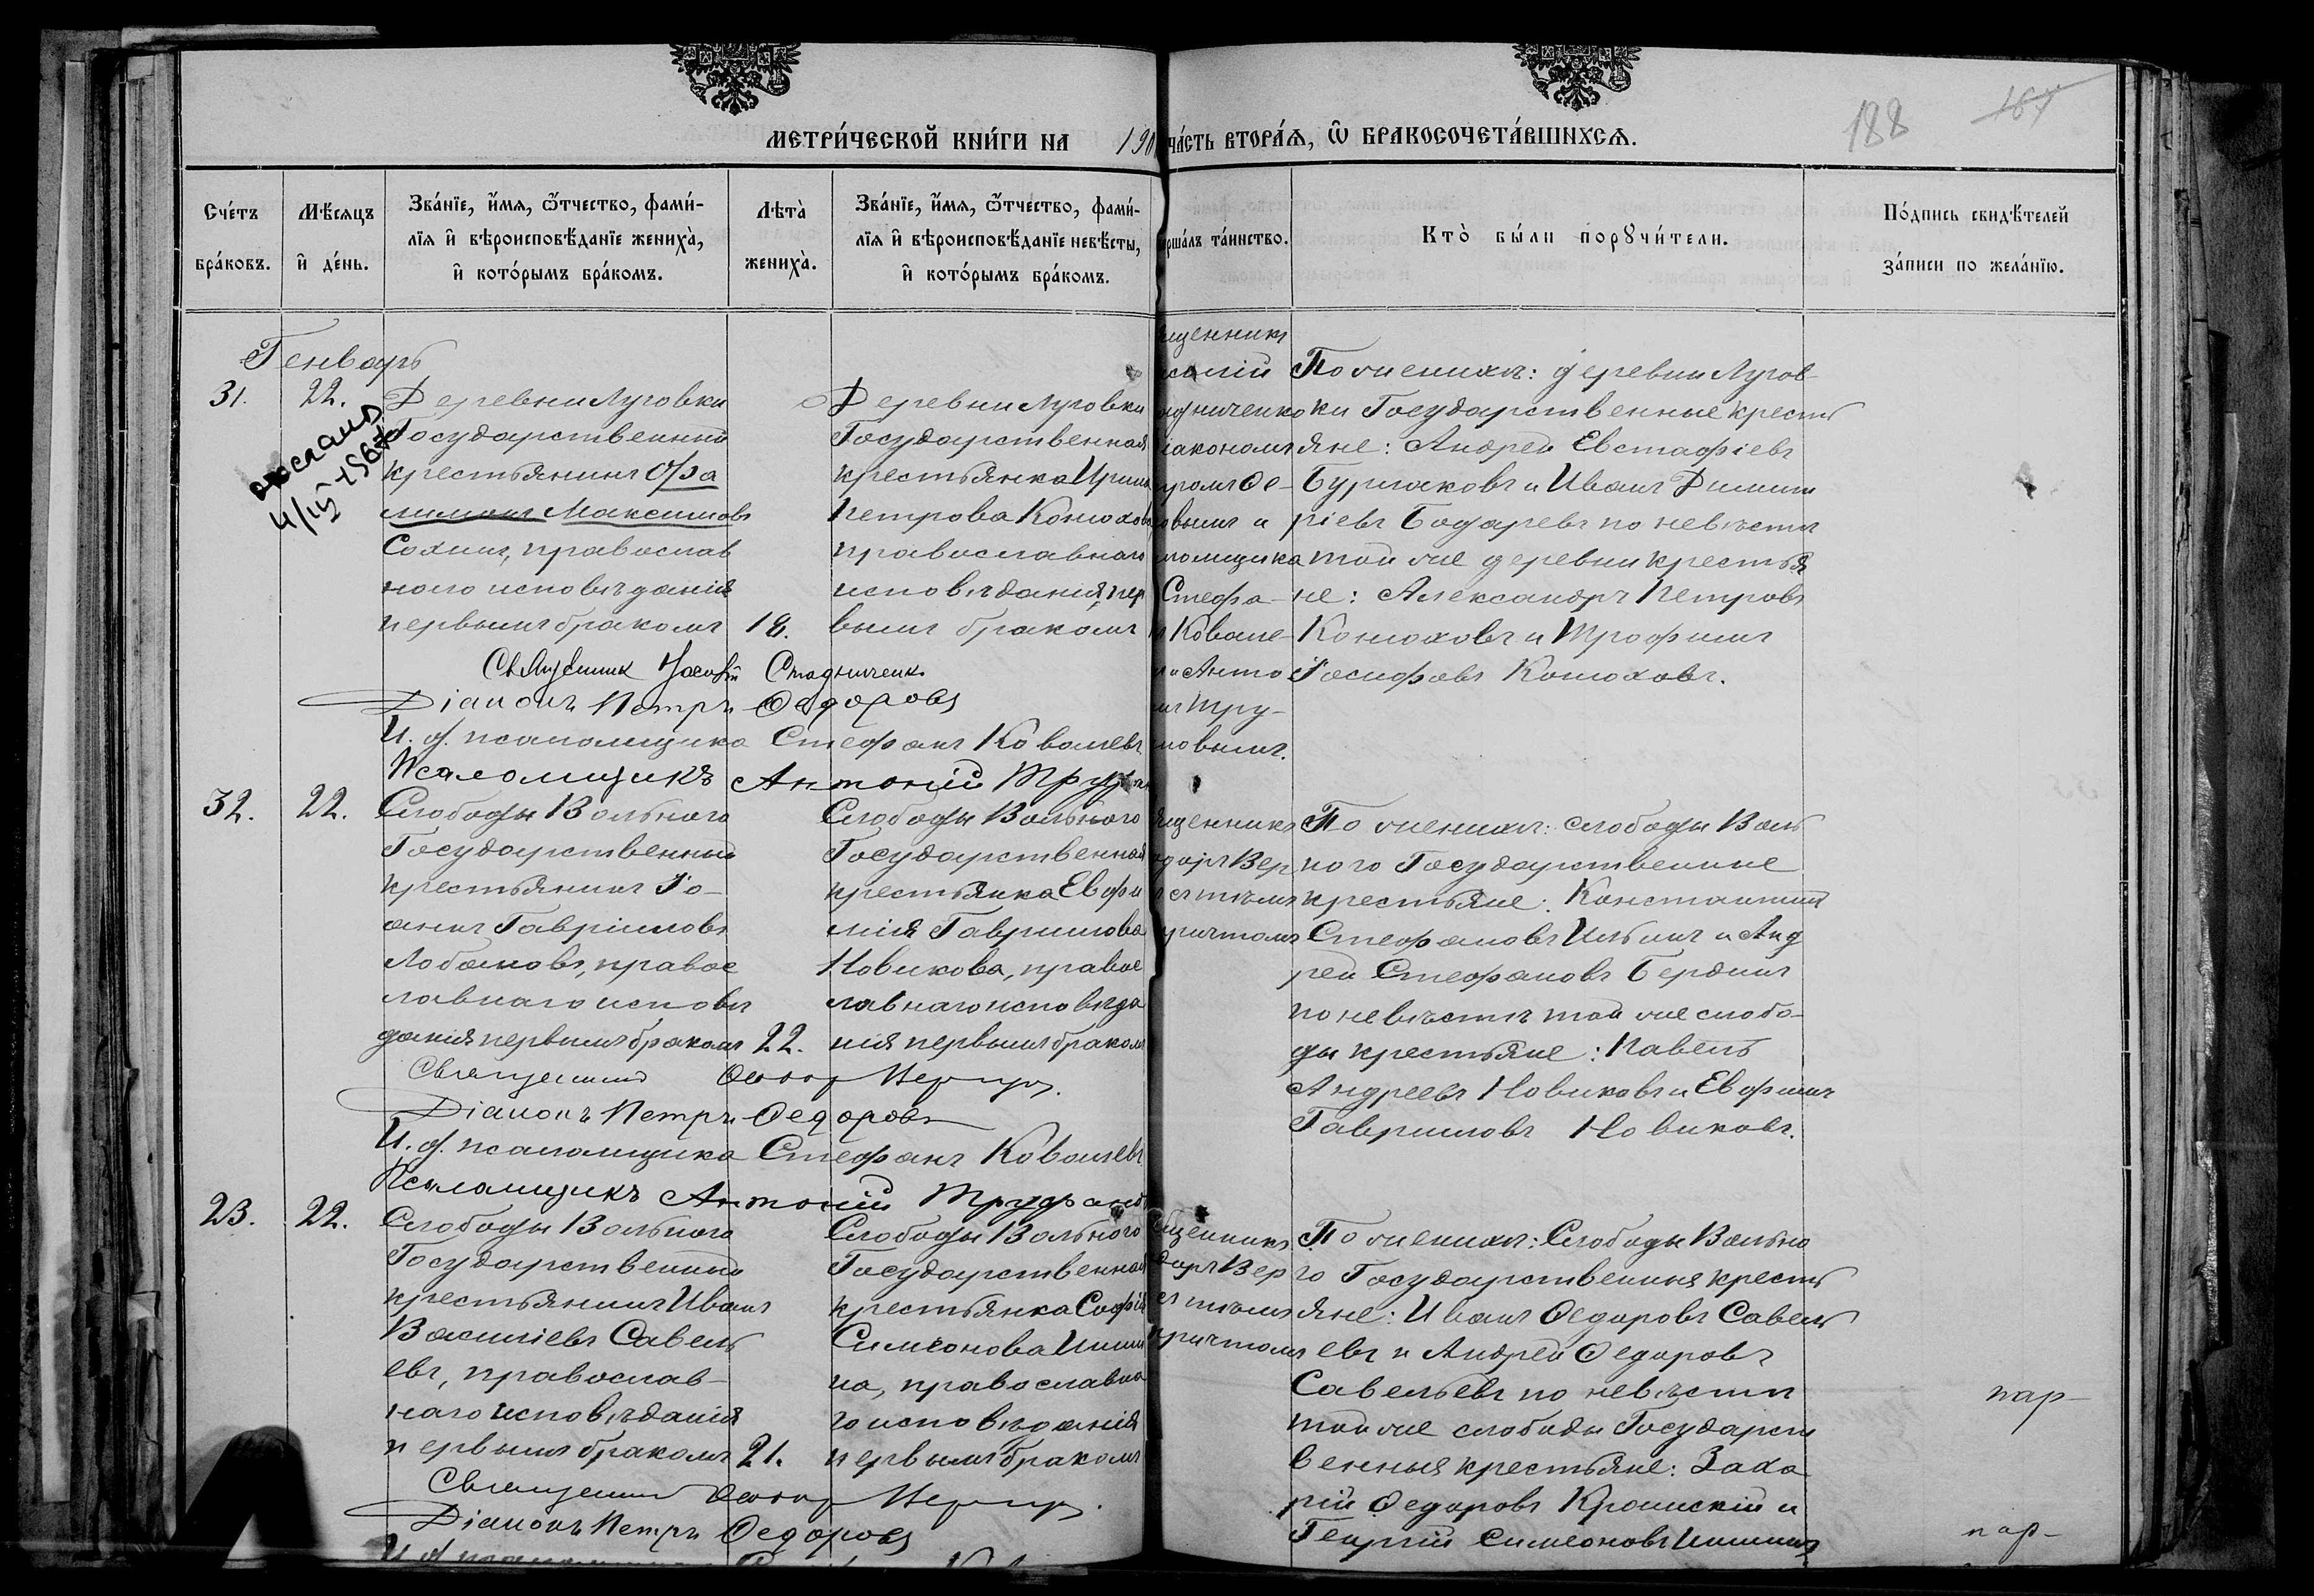 МЕТРИ́ЧЕСКОЙ КНИ́ГИ НА 190
ЧА́СТЬ ВТОРА́Я, Ѽ БРАКОСОЧЕТА́ВШИХСЯ.
188
167
Сче́тъ бра́ковъ.
Мѣ́сяцъ и҆ де́нь.
Зва́нїе, и҆́мя, ѻ҆́тчество, фами́-
лїя и҆ вѣроисповѣ́данїе жениха̀,
и҆ кото́рымъ бра́комъ.
Лѣта̀ жениха̀.
Зва́нїе, и҆́мя, ѻ҆́тчество, фами́-
лїя и҆ вѣроисповѣ́данїе невѣ́сты,
и҆ кото́рымъ бра́комъ.
ерша́лъ та́инство.
Кто̀ бы́ли порꙋчи́тели.
По́дпись свидѣ́телей
за́писи по жела́нїю.
Генварь
31.
22.
Деревни Луговки
Государственный
крестьянинъ Фра
Максимовъ
Сохинъ, православ
наго исповѣданія
первымъ бракомъ
18.
Деревни Луговки
Государственная
крестьянка Ирина
Петрова Конюхова
православнаго
исповѣданія, пер
вымъ бракомъ
щенникъ
адниченко
іакономъ
тромъ Ѳе-
овымъ и
ломщика
Стефа-
Ковале-
и Анто
Тру-
новымъ.
По женихѣ: деревни Лугов
ки Государственные кресть
яне: Андрей Евстафіевъ
Бурлаковъ и Иванъ Димит
ріевъ Бодаревъ по невѣстѣ
той же деревни крестья
не: Александръ Петровъ
Конюховъ и Трофимъ
Іосифовъ Конюховъ.
Священник Іосифъ Стадниченк.
Діаконъ Петръ Ѳедоровъ
И. д. псаломщика Стефанъ Ковалевъ
Псаломщикъ Антоній Труфан
32.
22.
Слободы Вольнаго
Государственный
крестьянинъ Іо-
аннъ Гавріиловъ
Лобановъ, правос
лавнаго исповѣ
данія первымъ бракомъ
22.
Слободы Вольнаго
Государственная
крестьянка Евфи
мія Гавриилова
Новикова, правос
лавнаго исповѣда
нія первымъ бракомъ
ященникъ
одоръ Вер
съ тѣмъ
причтомъ
По женихѣ: слободы Воль
наго Государственные
крестьяне: Константинъ
Стефановъ Ильинъ и Анд
рей Стефановъ Бердинъ
по невѣстѣ той же слобо-
ды крестьяне: Павелъ
Андреевъ Новиковъ и Евфимъ
Гавриловъ Новиковъ.
Священникъ Ѳеодор
Діаконъ Петръ Ѳедоровъ
И. д. псаломщика Стефанъ Ковалевъ
Псаломщикъ Антоній Труфановъ
23.
22.
Слободы Вольнаго
Государственный
крестьянинъ Иванъ
Василіевъ Савель
евъ, православ-
наго исповѣданія
первымъ бракомъ
21.
Слободы Вольнаго
Государственная
крестьянка Софія
Симеонова
на, православна
го исповѣданія
первымъ бракомъ
щенникъ
доръ Вер
съ тѣмъ
причтомъ
По женихѣ: Слободы Вольна
го Государственныя кресть
яне: Иванъ Ѳедоровъ Савель
евъ и Андрей Ѳедоровъ
Савельевъ по невѣстѣ
той же слободы Государст
венныя крестьяне: Заха
рій Ѳедоровъ Кромскій и
Георгій Симеоновъ
Священникъ Ѳеодор
Діаконъ Петръ Ѳедоровъ